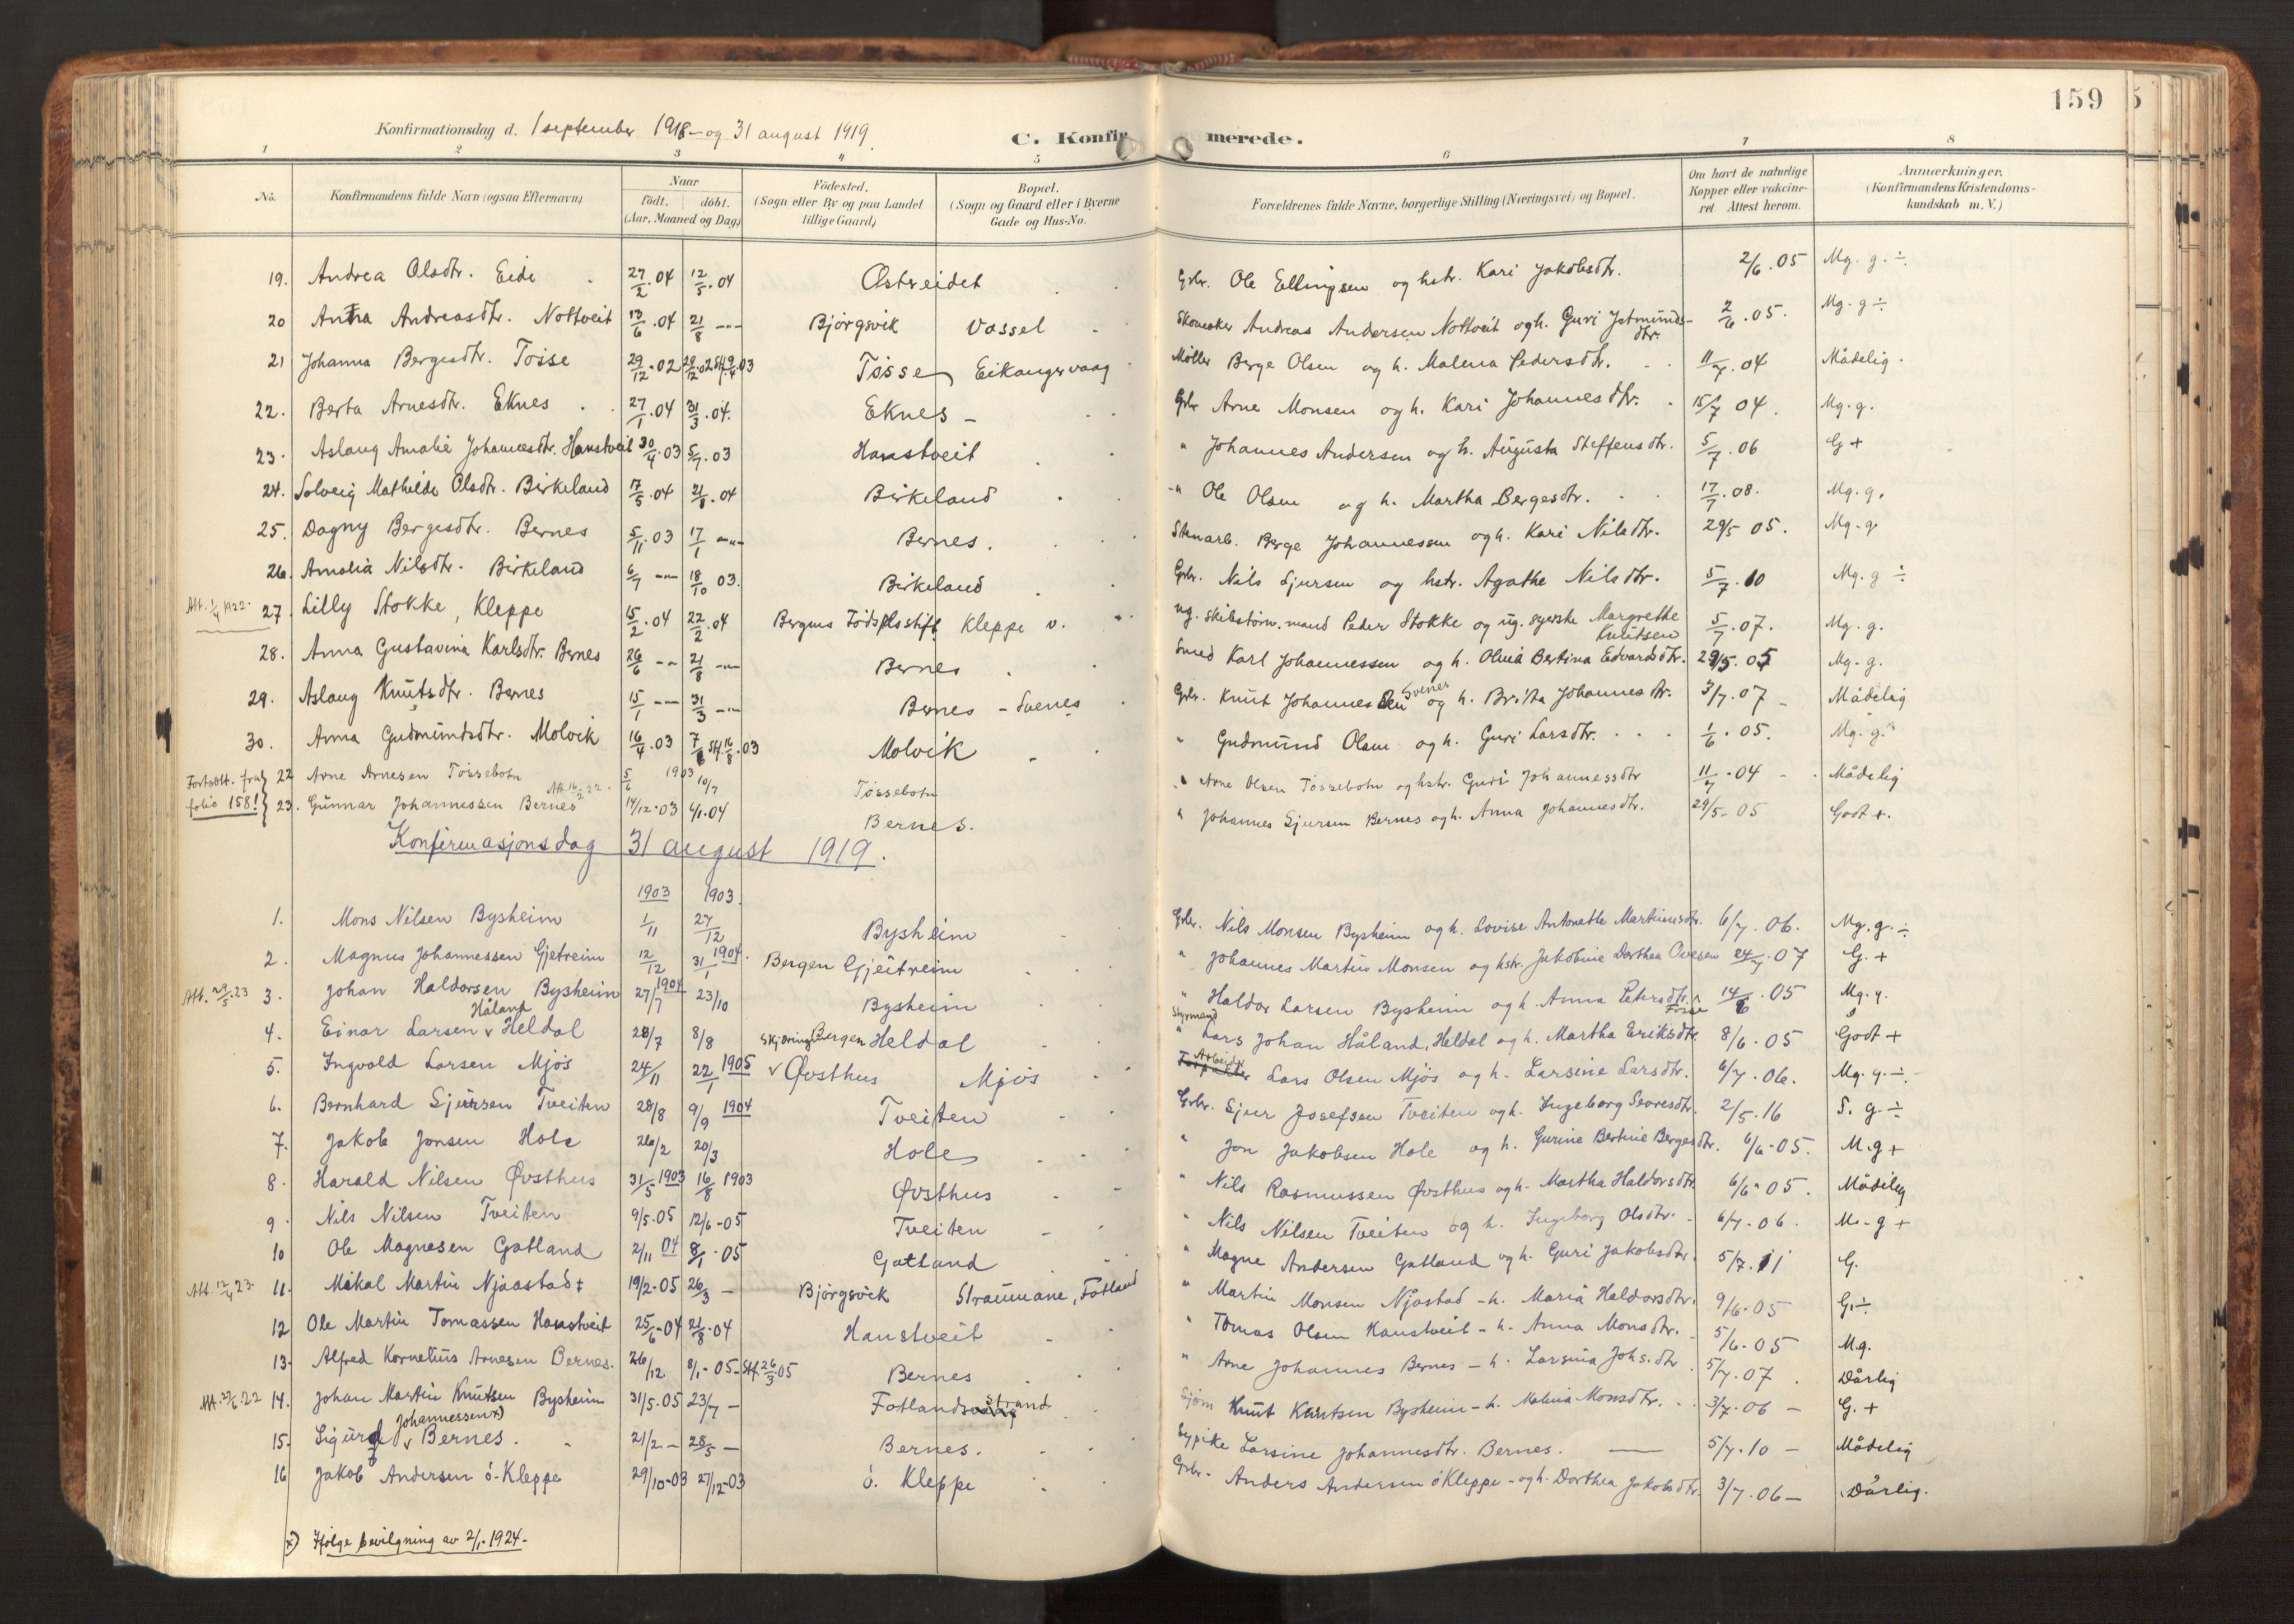 159
Konfirmationsdag d. 1 september 1918 - og 31 august 1919.
C. Konfirmerede.
1 2 3 4 5 6 7 8
No. Konfirmandens fulde Navn (ogsaa Efternavn) Naar født. døbt. (Aar, Maaned og Dag) Fødested. (Sogn eller By og paa Landet tillige Gaard) Bopæl. (Sogn og Gaard eller i Byerne Gade og Hus-No. Forældrenes fulde Navne, borgerlige Stilling (Næringsvei) og Bopæl. Om havt de naturlige Kopper eller vakcineret. Attest herom. Anmærkninger. (Konfirmandens Kristendomskundskab m. V.)
19. Andrea Olsdtr. Eide 27/2.04 12/5.04 Østreidet Gbr. Ole Ellingsen og hstr. Kari Jakobsdtr. 2/6.05 Mg. g. ÷
20 Anna Andreasdtr. Nottveit 13/6.04 21/8 -"- Bjørgsvik Vassel Skomaker Andreas Andersen Nottveit og h. Guri Jetmundsdtr. 2/6.05. Mg. g ÷
21 Johanna Bergesdtr. Tøsse 29/12.02 29/12.02 St.f. 9/4.03 Tøsse Eikangervaag Møller Berge Olsen og h. Malena Pedersdtr. 11/7.04 Mådelig.
22. Berta Arnesdtr. Eknes 27/1.04 31/3.04. Eknes - Gbr Arne Monsen og h. Kari Johannesdtr. 15/7 04. Mg. g.
23. Aslaug Amalie Johannesdtr. Hanstveit 30/4.03 5/7.03 Hanstveit " Johannes Andersen og h. Augusta Steffensdtr. 5/7.06 G +
24. Solveig Mathilde Olsdtr. Birkeland 17/5.04 21/8.04 Birkeland " Ole Olsen og h. Martha Bergesdtr. 17/7.08. Mg. g.
25. Dagny Bergesdtr. Bernes 5/11.03 17/1 -"- Bernes. Stenarb. Berge Johannessen og h. Kari Nilsdtr. 29/5 05. Mg. g
26. Amalia Nilsdtr. Birkeland 6/7 -"- 18/10 03. Birkeland Gbr. Nils Sjursen og hstr. Agathe Nilsdtr. 5/7.10 Mg. g ÷
Att. 1/4 1922. 27. Lilly Stokke, Kleppe 15/2.04 22/2.04 Bergens Fødselsstift. Kleppe v. ug. skibstøm. mand Peder Stokke og ug. syerske Margrethe Knutsen 5/7.07. Mg. g.
28. Anna Gustavina Karlsdtr. Bernes 26/6 -"- 21/8 -"- Bernes Smed Karl Johannessen og h. Olina Bertina Edvardsdtr. 29/5.05 Mg. g.
29. Aslaug Knutsdtr. Bernes 15/1 -"- 31/3 -"- Bernes - Svenes Gbr. Knut Johannessen Svenes og h. Brita Johannesdtr. 3/7.07 - Mådelig
30. Anna Gudmundsdtr. Molvik 16/4.03 7/6 St.f. 16/8.03 Molvik " Gudmund Olsen og h. Guri Larsdtr. 1/6.05. Mg. g.
Fortsatt. fra folio 158! } 22 Arne Arnesen Tøssebotn 5/6 1903 10/7 Tøssebotn " Arne Olsen Tøssebotn og hstr. Guri Johannessdtr 11/7.04 - Mådelig
23. Gunnar Johannessen Bernes Att. 16/2 22. 14/12.03 4/1.04 Bernes. " Johannes Sjursen Bernes og h. Anna Johannesdtr. 29/5-05 Godt +.
Konfirmasjonsdag 31 august 1919.
1903 1903.
1. Mons Nilsen Bysheim 1/11 27/12 Bysheim Gbr. Nils Monsen Bysheim og h. Lovise Antonette Martinusdtr. 6/7.06. Mg. g. ÷
2. Magnus Johannessen Gjetreim 12/12 31/1 1904. Bergen Gjeitreim " Johannes Martin Monsen og hstr. Jakobine Dorthea Ovesen 24/7.07 G. +
Att. 29/5.23 3. Johan Haldorsen Bysheim 27/7 1904 23/10 Bysheim " Haldor Larsen Bysheim og h. Anna Petersdtr. 14/6.05 Mg. g.
4. Einar Larsen Håland Heldal 28/7 8/8 Bergen Heldal Styrmand " Lars Johan Håland, Heldal og h. Martha Eriksdtr. 8/6.05 Godt +
5. Ingvald Larsen Mjøs 24/11 22/1 1905 Øvsthus Mjøs Arbeid. Lars Olsen Mjøs og h. Larsine Larsdtr. 6/7.06. Mg. g. ÷.
6. Bernhard Sjursen Tveiten 28/8 9/9 1904 Tveiten Gbr. Sjur Josefsen Tveiten og h. Ingeborg Seversdtr. 2/5.16 S. g. ÷
7. Jakob Jonsen Hole 26/2 20/3 Hole " Jon Jakobsen Hole og h. Gurine Bertine Bergesdtr. 6/6-05. M.g +
8. Harald Nilsen Øvsthus 31/5 1903 16/8 1903 Øvsthus " Nils Rasmussen Øvsthus og h. Martha Haldorsdtr 6/6.05. Mådelig
9. Nils Nilsen Tveiten 9/5.05 12/6-05 Tveiten " Nils Nilsen Tveiten og h. Ingeborg Olsdtr. 6/7.06. M.- g +
10 Ole Magnesen Gatland 2/11 04 8/1.05 Gatland " Magne Andersen Gatland og h. Guri Jakobsdtr. 5/7.11 G.
Att. 12/4 23. 11. Mikal Martin Njaastad + 19/2-05 26/3 - Bjørgsvik Straumane, Fotland " Martin Monsen Njåstad - h. Maria Haldorsdtr. 9/6-05 G. ÷
12 Ole Martin Tomassen Hanstveit 25/6-04 21/8-04 Hanstveit " Tomas Olsen Hanstveit - h. Anna Monsdtr. 5/6.05 Mg.
13. Alfred Kornelius Arnesen Bernes. 26/12 8/1-05- St.f. 26/3.05 Bernes " Arne Johannes Bernes - h. Larsina Johs. dtr. 5/7.07. Dårlig
14. Johan Martin Knutsen Bysheim 31/5.05 23/7 - Fotlandsvaag Strand Knut Knutsen Bysheim - h. Malina Monsdtr. 3/7.06 - G. +
15. Sigurd Johannessen x) Bernes. 21/2 - 28/5 - Bernes. Larsine Johannesdtr. Bernes. 5/7.10 - Mådelig
16 Jakob Andersen ó-Kleppe 29/10-03 27/12-03 ó. Kleppe Gbr. Anders Andersen ó Kleppe - og h. Dorthea Jakobsdtr. 3/7.06 - Dårlig.
x) Ifølge bevilgning av 2/1-1924.